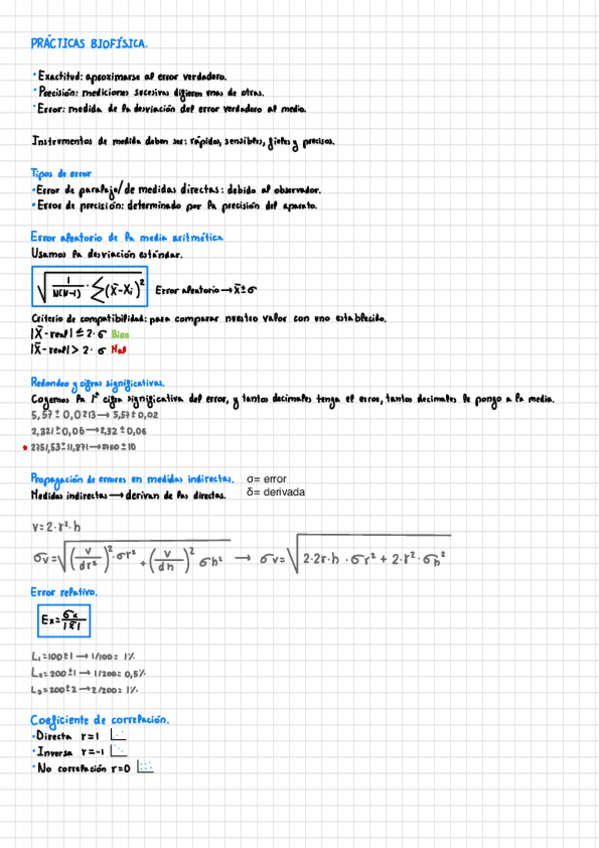 PRÁCTICAS BIOFÍSICA.
· Exactitud: aproximarse al error verdadero.
· Precisión: mediciones sucesivas difieren unas de otras.
· Error: medida de la desviación del error verdadero al medio.
Instrumentos de medida deben ser: rápidos, sensibles, fieles y precisos.
Tipos de error
· Error de paralaje/de medidas directas: debido al observador.
· Error de precisión: determinado por la precisión del aparato.
Error aleatorio de la media aritmética
Usamos la desviación estándar.
√(1/N(N-1) · Σ(x̄-xi)²) Error aleatorio → x̄±σ
Criterio de compatibilidad: para comparar nuestro valor con uno establecido.
|x̄-real| ≤ 2·σ Bien
|x̄-real| > 2·σ Mal
Redondeo y cifras significativas.
Cogemos la 1ª cifra significativa del error, y tantos decimales tenga el error, tantos decimales le pongo a la media.
5,57 ± 0,0213 → 5,57 ± 0,02
2,321 ± 0,06 → 2,32 ± 0,06
2751,53 ± 11,871 → 2750 ± 10
Propagación de errores en medidas indirectas. σ= error
Medidas indirectas → derivan de las directas. δ= derivada
V= 2·r²·h
σv=√((V/dr²)²·σr² + (V/dh)² σh²) → σv=√(2·2r·h·σr² + 2·r²·σh²)
Error relativo.
Ex= σx/|x̄|
L₁=100±1 → 1/100= 1%
L₂=200±1 → 1/200= 0,5%
L₃=200±2 → 2/200= 1%
Coeficiente de correlación.
· Directa r=1
· Inversa r=-1
· No correlación r=0